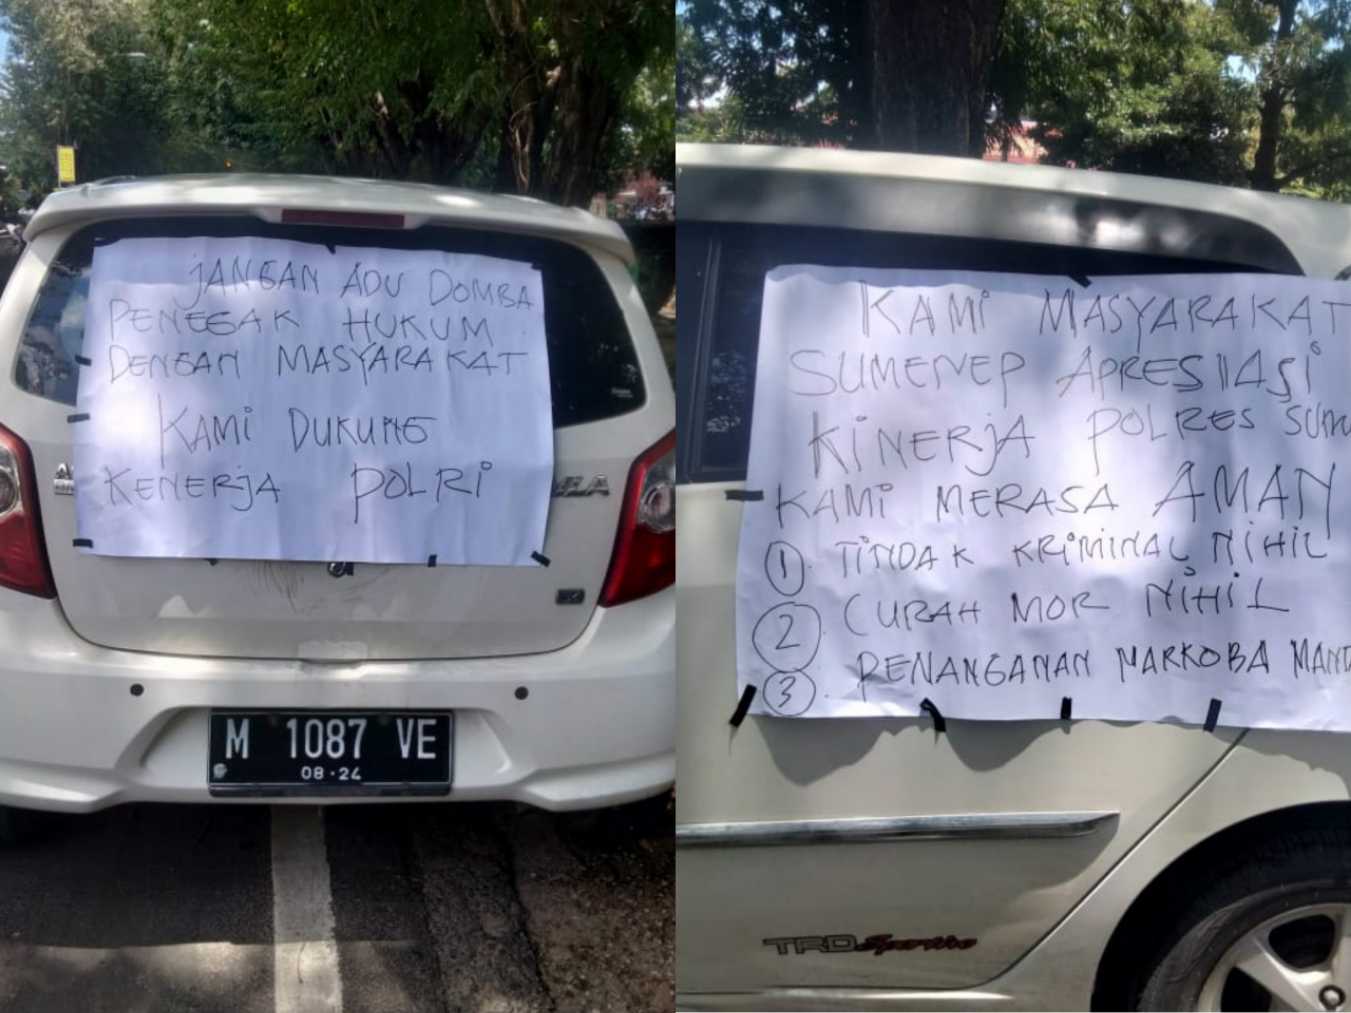 JANGAN ADU DOMBA
PENEGAK HUKUM
DENGAN MASYARAKAT
KAMI DUKUNG
KENERJA POLRI
M 1087 VE
08·24
KAMI MASYARAKAT
SUMENEP APRESIASI
KINERJA POLRES SUM
KAMI MERASA AMAN
1. TINDAK KRIMINAL NIHIL
2. CURAH MOR NIHIL
3. PENANGANAN NARKOBA MAND
TRD Sportivo